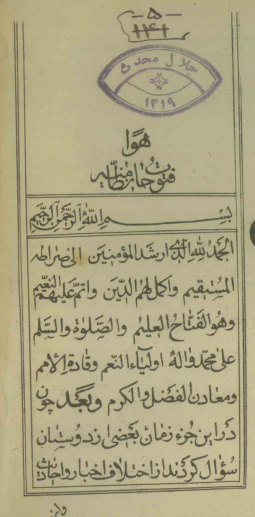 ۵
۱۴۱
جلال محدث
۱۳۱۹
هو
فتوحات
بسم الله الرحمن الرحیم
الحمد لله الذی ارشد المؤمنین الی صراطه
المستقیم واکمل لهم الدین واتم علیهم النعیم
وهو الفتاح العلیم والصلوة والسلم
علی محمد واله اولیاء النعم وقادة الامم
ومعادن الفضل والکرم وبعد چون
در این جزء زمان بعضی از دوستان
سؤال کردند از اختلاف اخبار واحادیث